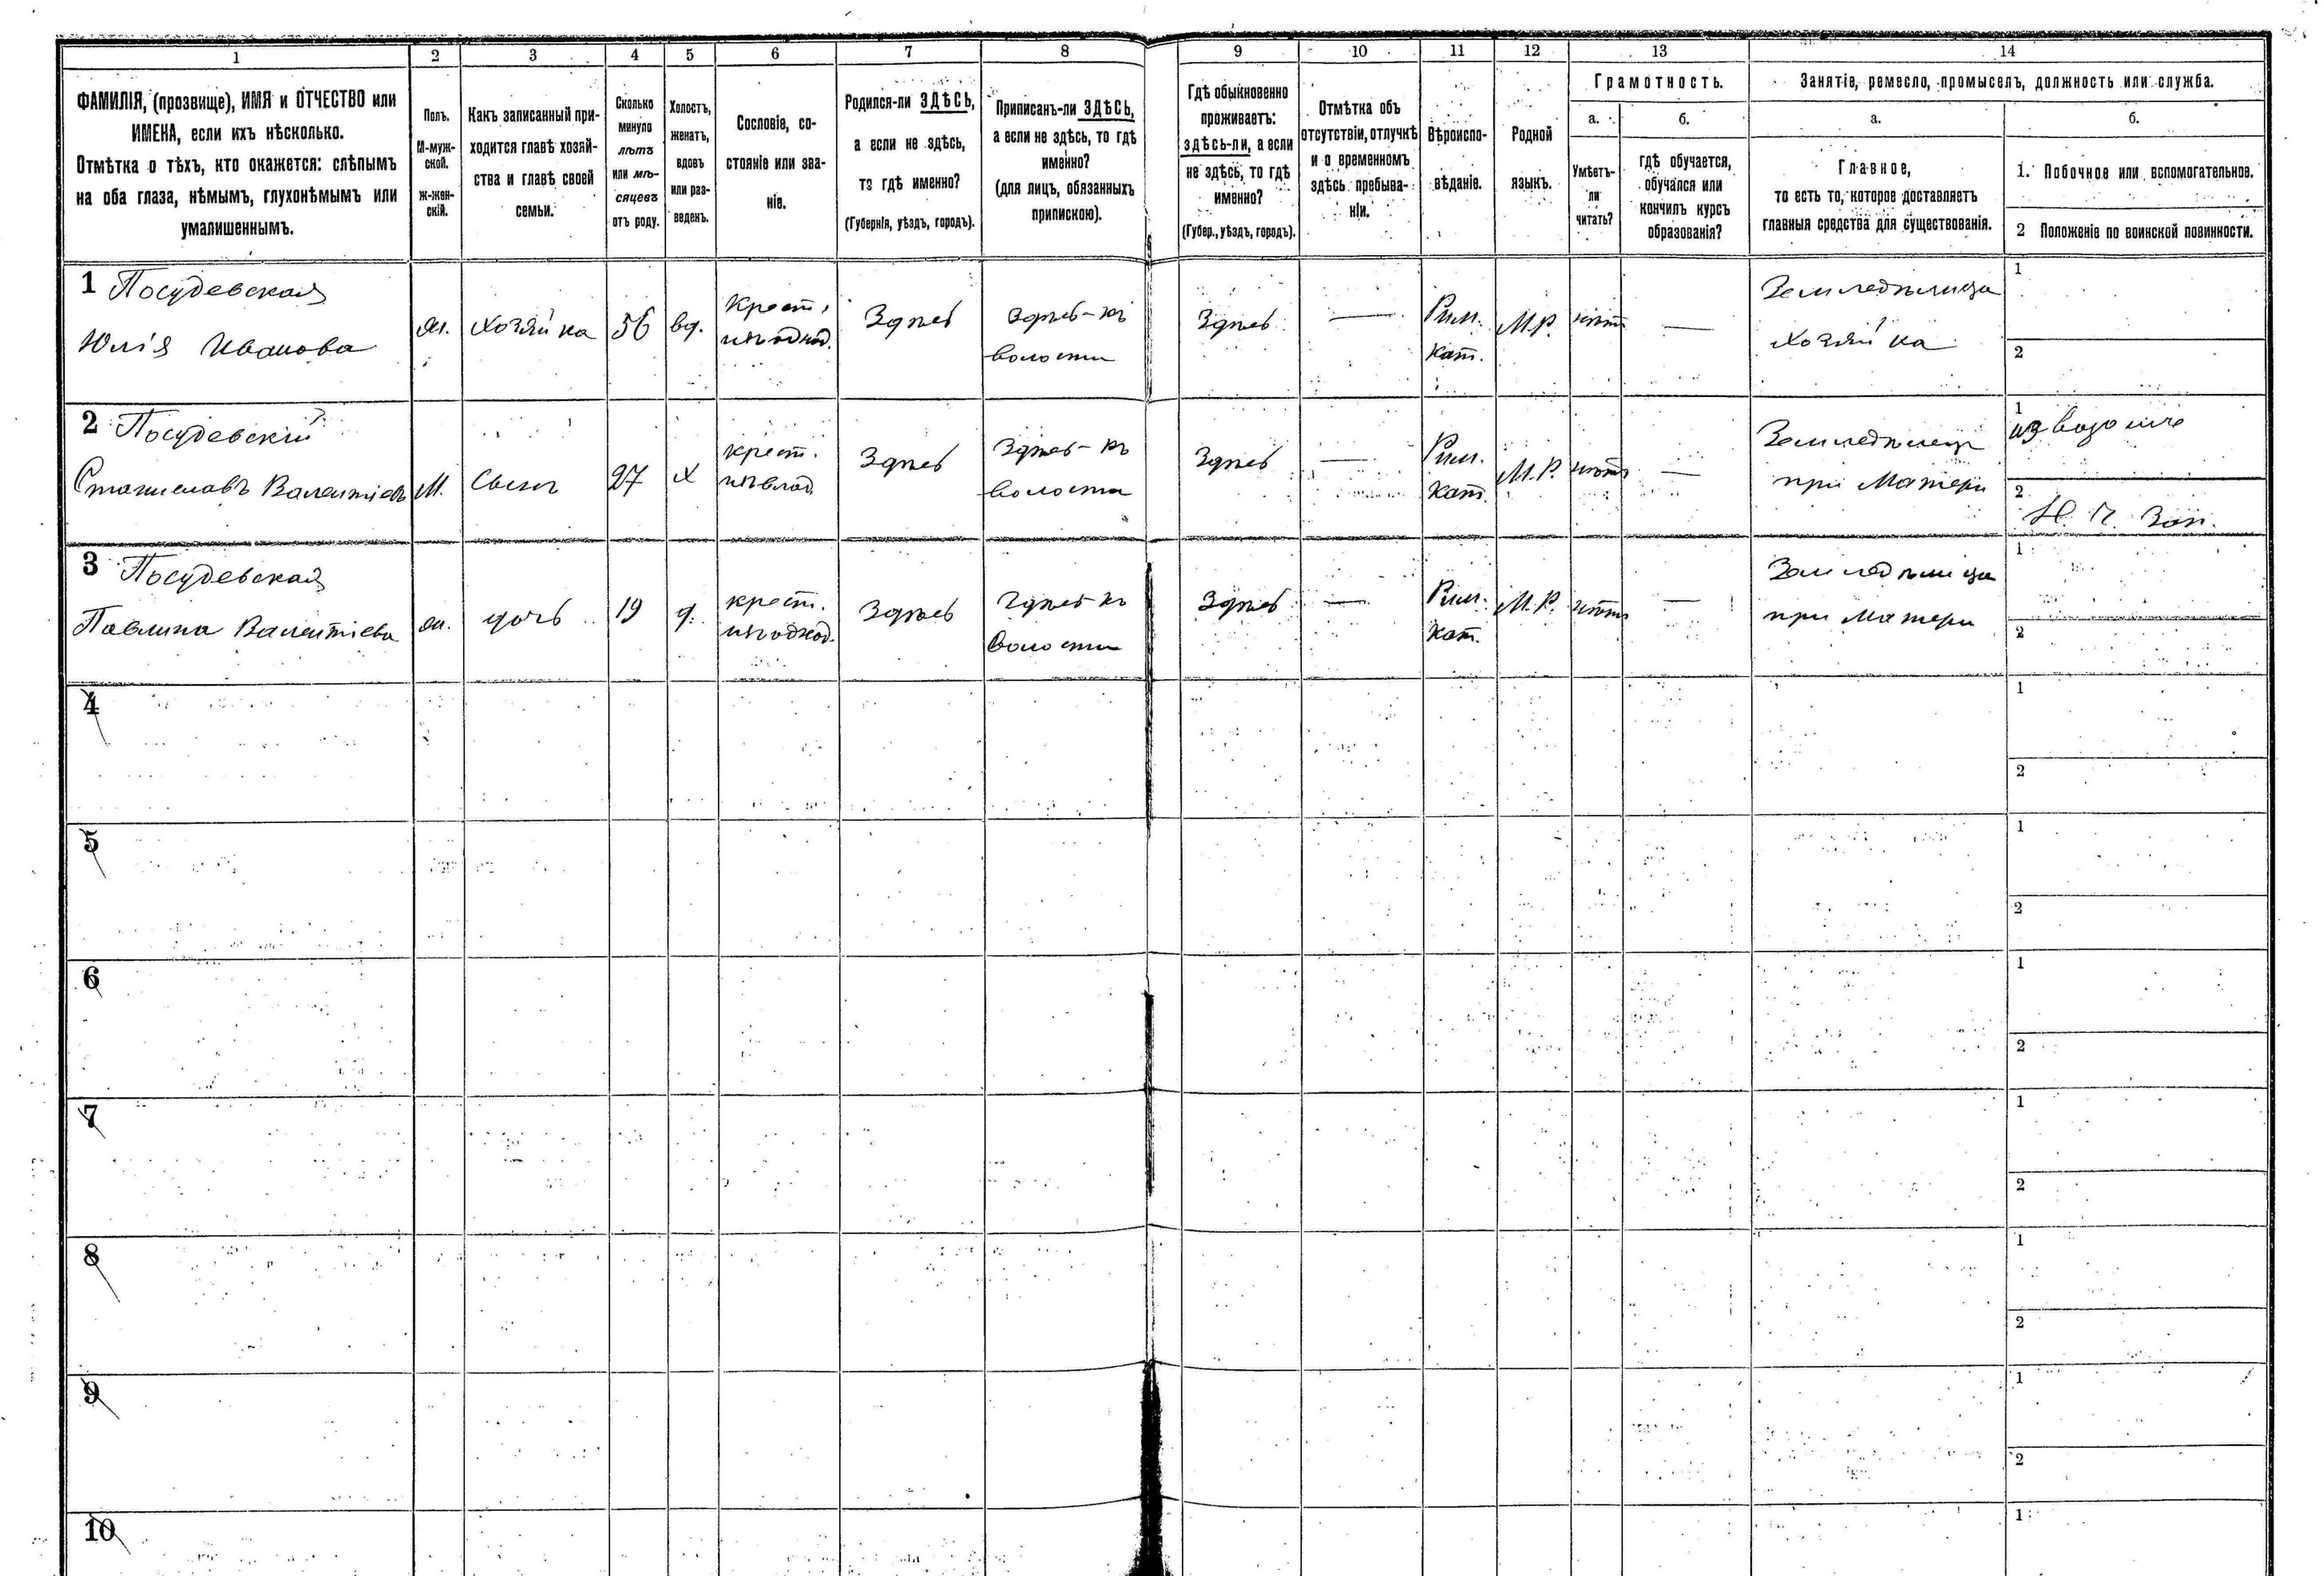 1 2 3 4 5 6 7 8 9 10 11 12 13 14
ФАМИЛІЯ, (прозвище), ИМЯ и ОТЧЕСТВО или
ИМЕНА, если ихъ нѣсколько.
Отмѣтка о тѣхъ, кто окажется: слѣпымъ
на оба глаза, нѣмымъ, глухонѣмымъ или
умалишеннымъ.
Полъ.
М-муж-
ской.
Ж-жен-
скій.
Какъ записанный при-
ходится главѣ хозяй-
ства и главѣ своей
семьи.
Сколько
минуло
лѣтъ
или мѣ-
сяцевъ
отъ роду.
Холостъ,
женатъ,
вдовъ
или раз-
веденъ.
Сословіе, со-
стояніе или зва-
ніе.
Родился-ли ЗДѢСЬ,
а если не здѣсь,
то гдѣ именно?
(Губернія, уѣздъ, городъ).
Приписанъ-ли ЗДѢСЬ,
а если не здѣсь, то гдѣ
именно?
(для лицъ, обязанныхъ
припискою).
Гдѣ обыкновенно
проживаетъ:
здѣсь-ли, а если
не здѣсь, то гдѣ
именно?
(Губер., уѣздъ, городъ).
Отмѣтка объ
отсутствіи, отлучкѣ
и о временномъ
здѣсь пребыва-
ніи.
Вѣроиспо-
вѣданіе.
Родной
языкъ.
Грамотность.
а.
Умѣетъ-
ли
читать?
б.
гдѣ обучается,
обучался или
кончилъ курсъ
образованія?
Занятіе, ремесло, промыселъ, должность или служба.
а.
Главное,
то есть то, которое доставляетъ
главныя средства для существованія.
б.
1. Побочное или вспомогательное.
2 Положеніе по воинской повинности.
1 Посудевская
Юлія Иванова
ж.
Хозяйка
56
вд.
Крест.
Здѣсь
Здѣсь-къ
волости
Здѣсь
—
Рим.
Кат.
М.Р.
нѣтъ
—
Земледѣлица
Хозяйка
1
2
2 Посудевскій
Станиславъ Валентіевъ
М.
Сынъ
27
Х
крест.
Здѣсь
Здѣсь-къ
волости
Здѣсь
—
Рим.
Кат.
М.Р.
нѣтъ
—
Земледѣлецъ
при Матери
1
2
3 Посудевская
Павлина Валентіева
ж.
дочь
19
д.
крест.
Здѣсь
Здѣсь-къ
волости
Здѣсь
—
Рим.
Кат.
М.Р.
нѣтъ
—
Земледѣлица
при Матери
1
2
4
1
2
5
1
2
6
1
2
7
1
2
8
1
2
9
1
2
10
1